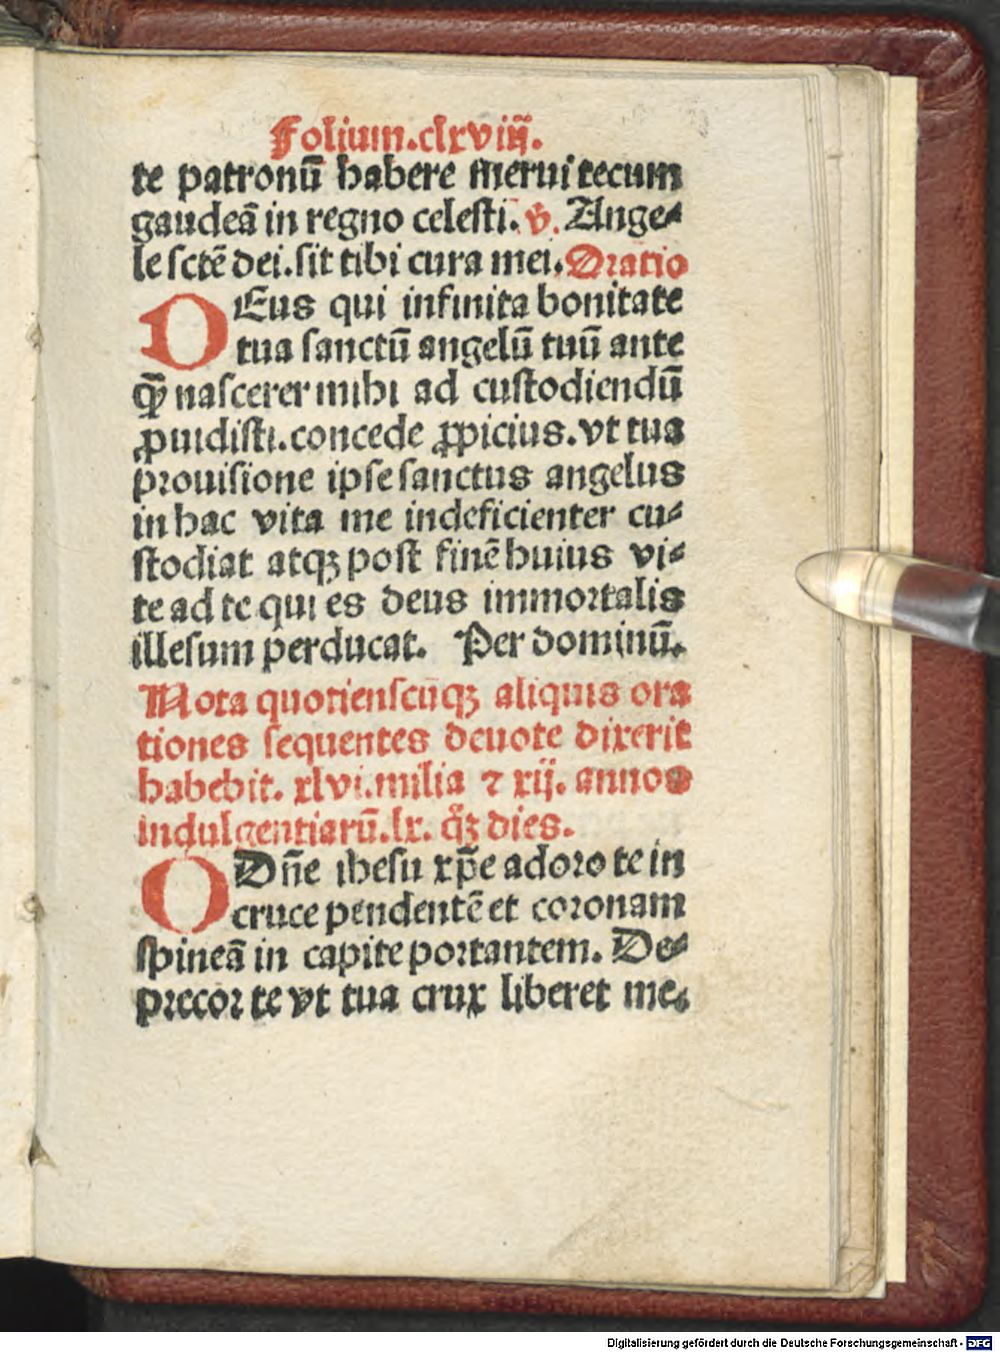 Folium.clxviiij.
te patronū habere merui tecum
gaudeā in regno celesti. v̄. Ange⸗
le sctē dei.sit tibi cura mei. Oratio
DEus qui infinita bonitate
tua sanctū angelū tuū ante
qꝫ̄ nascerer mihi ad custodiendū
ꝓuidisti.concede ꝓpicius.vt tua
prouisione ipse sanctus angelus
in hac vita me indeficienter cu⸗
stodiat atqꝫ post finē huius vi⸗
te ad te qui es deus immortalis
illesum perducat. Per dominū.
Nota quotienscūqꝫ aliquis ora
tiones sequentes deuote dixerit
habebit. xlvi.milia ⁊ xij. annos
indulgentiarū.lx. q̄ꝫ dies.
O Dn̄e ihesu xp̄e adoro te in
cruce pendentē et coronam
spineā in capite portantem. De⸗
precor te vt tua crux liberet me.
Digitalisierung gefördert durch die Deutsche Forschungsgemeinschaft - DFG